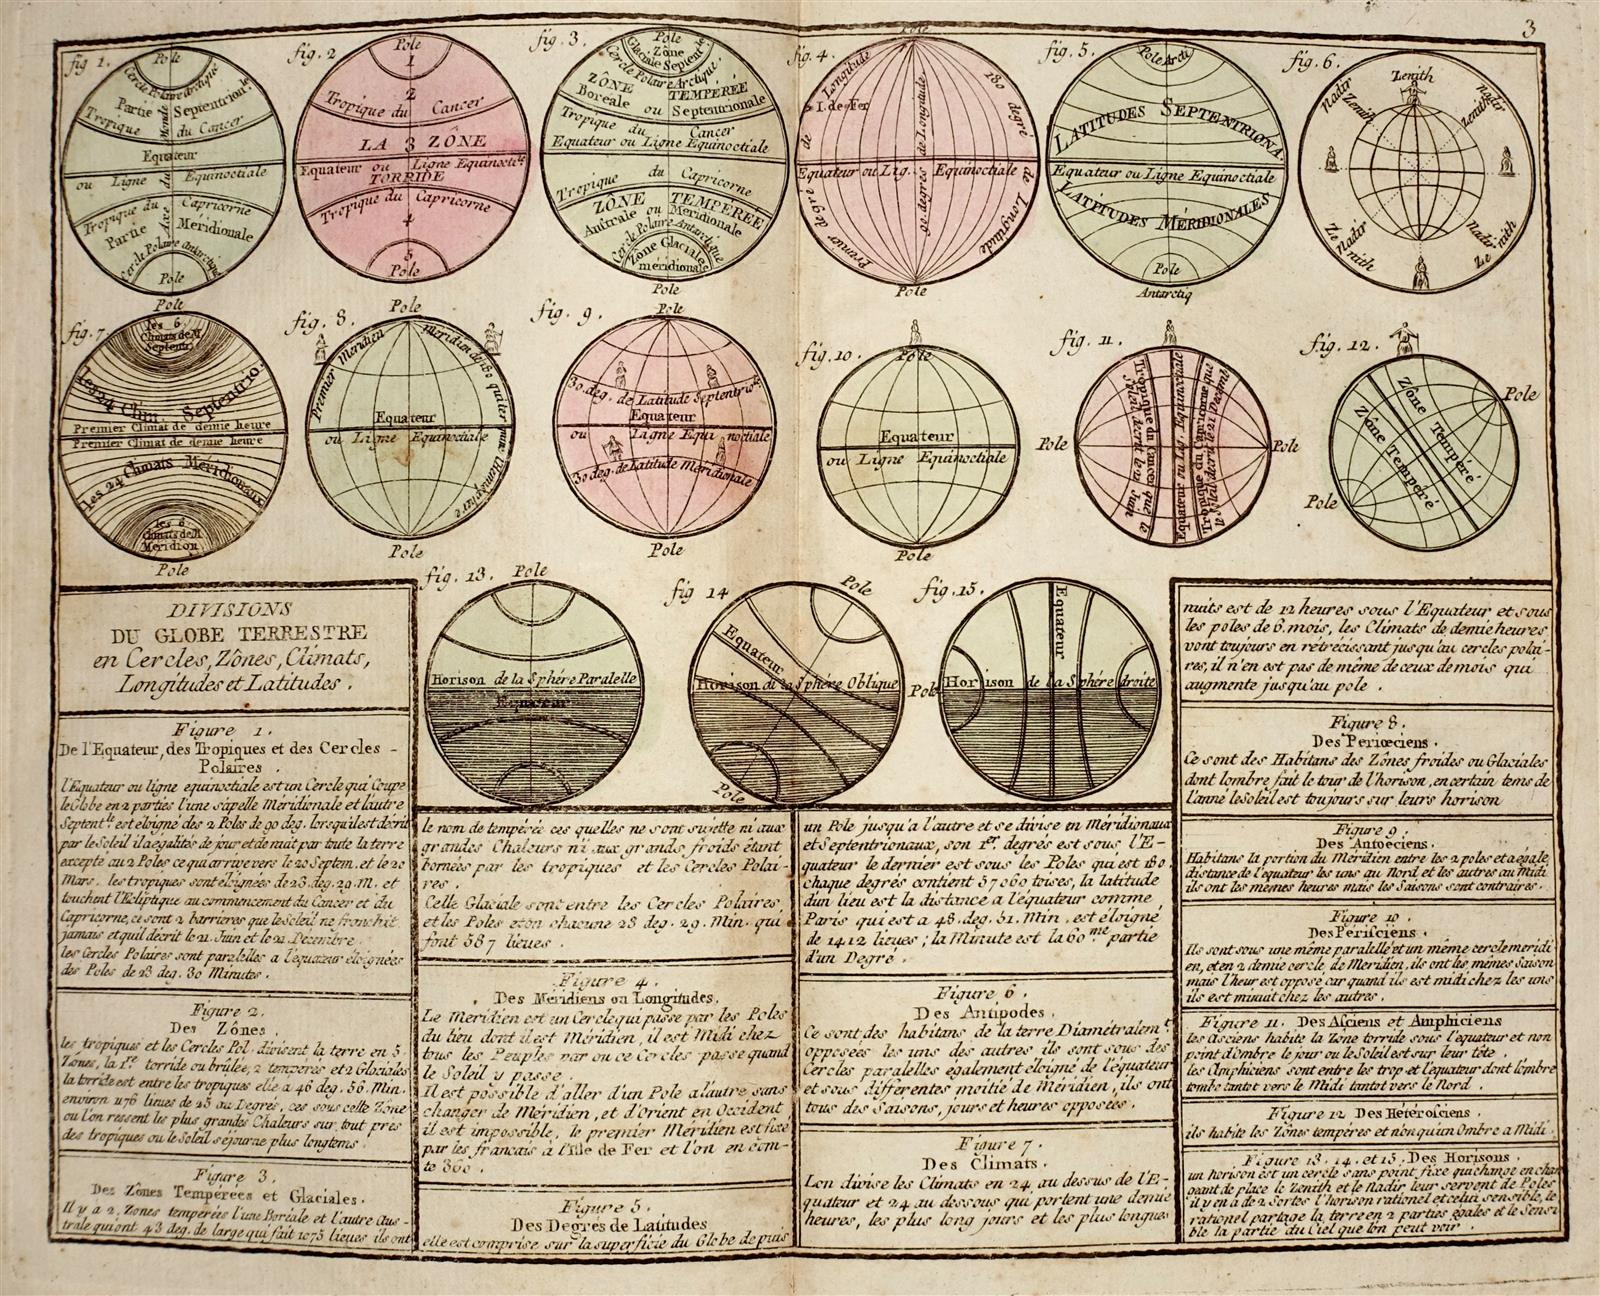 3
fig. 1.
Pole
Cercle Polaire Arctique
Partie Septentrion.le
Tropique du Cancer
Equateur
ou Ligne Equinoctiale
Axe du Monde
Tropique du Capricorne
Partie Méridionale
Cercle Polaire Antarctique
Pole
fig. 2
Pole
1
2
Tropique du Cancer
LA 3 ZÔNE
Equateur ou Ligne Equinoctile
TORRIDE
Tropique du Capricorne
4
5
Pole
fig. 3.
Pole
Zône
Glaciale Septent.le
Cercle Polaire Arctique
ZÔNE TEMPERÉE
Boréale ou Septentrionale
Tropique du Cancer
Equateur ou Ligne Equinoctiale
Tropique du Capricorne
ZÔNE TEMPERÉE
Autrale ou Meridionale
Cercle Polaire Antarctique
Zône Glaciale
méridionale
Pole
fig. 4.
Pole
Premier dégré de Longitude
I. de Fer
90 degrés de Longitude
180 degré de Longitude
Equateur ou Lig. Equinoctiale
Pole
fig. 5.
Pole Arcti
LATITUDES SEPTENTRIONA.
Equateur ou Ligne Equinoctiale
LATITUDES MÉRIDIONALES
Pole
Antarctiq
fig. 6.
Zenith
Nadir
Zenith
Nadir
Zenith
Nadir
Zenith
Nadir
Zenith
fig. 7.
Pole
les 6.
Climats de M.
Septentr.
les 24 Clim. Septentrio.
Premier Climat de demie heure
Premier Climat de demie heure
les 24 Climats Méridionaux
les 6.
climats de M
Meridion
Pole
fig. 8.
Pole
Premier Meridien
Meridien de 180 qui termine l'Hemisphere
Equateur
ou Ligne Equinoctiale
Pole
fig. 9.
Pole
30. deg. de Latitude Septentrio.
Equateur
ou Ligne Equinoctiale
30 deg. de Latitude Méridionale
Pole
fig. 10.
Pole
Equateur
ou Ligne Equinoctiale
Pole
fig. 11.
Pole
Tropique du Cancer que le
Soleil décrit le 21 Juin
Equateur ou Lig. Equinoctiale
Tropique du Capricorne que
le Soleil décrit le 21 Decemb
Pole
fig. 12.
Pole
Zône Tempéré
Zône Tempéré
Pole
fig. 13.
Pole
Horison de la Sphére Paralelle
Equateur
fig 14
Pole
Equateur
Horison de la Sphére Oblique
Pole
fig. 15.
Equateur
Pole
Horison de la Sphére droite
DIVISIONS
DU GLOBE TERRESTRE
en Cercles, Zônes, Climats,
Longitudes et Latitudes.
Figure 1.
De l'Equateur, des Tropiques et des Cercles -
Polaires.
l'Equateur ou ligne equinoctiale est un Cercle qui Coupe
le Globe en 2 parties l'une s'apelle Méridionale et l'autre
Septent.le est éloigné des 2 Poles de 90 deg. lorsqu'il est décrit
par le Soleil il a égalités de jour et de nuit par toute la terre
excepté au 2 Poles ce qui arrive vers le 20 Septem. et le 20
Mars. les tropiques sont éloignées de 23 deg. 29. M. et
touchent l'Ecliptique au commencement du Cancer et du
Capricorne, ce sont 2 barrières que le Soleil ne franchit
jamais et qu'il décrit le 21 Juin et le 21 Decembre.
les Cercles Polaires sont paralelles a l'equateur éloignées
des Poles de 23 deg. 30 Minutes.
Figure 2.
Des Zônes.
les tropiques et les Cercles Pol. divisent la terre en 5.
Zônes, la 1re torride ou brulée, 2 temperés et 2 Glaciales
la torride est entre les tropiques elle a 46 deg. 56 Min.
environ 1176 lieues de 25 au Degrés, ces sous celle Zône
ou l'on ressent les plus grandes Chaleurs sur tout pres
des tropiques ou le Soleil séjourne plus longtems.
Figure 3.
Des Zônes Temperées et Glaciales.
Il y a 2. Zones temperées l'une Boréale et l'autre Aus-
trale qui ont 43 deg. de large qui fait 1075 lieues ils ont
le nom de tempérée ces quelles ne sont sujette ni aux
grandes Chaleurs ni aux grands froids étant
bornées par les tropiques et les Cercles Polai-
res.
Celle Glaciale sont entre les Cercles Polaires
et les Poles et ón chacune 23 deg. 29. Min. qui
font 587 lieues.
Figure 4.
Des Méridiens ou Longitudes.
Le Meridien est un Cercle qui passe par les Poles
du lieu dont il est Méridien, il est Midi chez
tous les Peuples par ou ce Cercles passe quand
le Soleil y passe.
Il est possible d'aller d'un Pole a l'autre sans
changer de Méridien, et d'Orient en Occident
il est impossible, le premier Méridien est fixé
par les francais à l'Isle de Fer et l'on en com-
te 360.
Figure 5.
Des Degrés de Latitudes
elle est comprise sur la superficie du Globe depuis
un Pole jusqu'a l'autre et se divise en Méridionaux
et Septentrionaux, son 1er degrés est sous l'E-
quateur le dernier est sous les Poles qui est 180.
chaque degrés contient 57060 toises, la latitude
d'un lieu est la distance a l'équateur comme
Paris qui est a 48. deg. 51. Min. est éloigné
de 1412 lieues; la Minute est la 60me partie
d'un Degré.
Figure 6.
Des Antipodes.
Ce sont des habitans de la terre Diamétralemt
opposées les uns des autres ils sont sous des
Cercles paralelles également eloigné de l'équateur
et sous différentes moitie de Méridien, ils ont
tous des Saisons, jours et heures opposées.
Figure 7.
Des Climats.
L'on divise les Climats en 24. au dessus de l'E-
quateur et 24 au dessous qui portent une demie
heures, les plus long jours et les plus longues
nuits est de 12 heures sous l'Equateur et sous
les poles de 6. mois, les Climats de demie heures
vont toujours en rétrécissant jusqu'au cercles polai-
res, il n'en est pas de même de ceux de mois qui
augmente jusqu'au pole.
Figure 8.
Des Periœciens.
Ce sont des Habitans des Zônes froides ou Glaciales
dont lombre fait le tour de l'horison, en certain tems de
l'anné le Soleil est toujours sur leurs horison
Figure 9.
Des Antoéciens.
Habitans la portion du Méridien entre les 2 poles et a égale
distance de l'equateur les uns au Nord et les autres au Midi
ils ont les mêmes heures mais les Saisons sont contraires.
Figure 10.
Des Périsciens.
Ils sont sous une même paralelle et un même cercle meridi-
en, et en 2 demie cercle de Meridien, ils ont les mêmes saison
mais l'heur est opposé car quand ils est midi chez les uns
ils est minuit chez les autres.
Figure 11. Des Asciens et Amphiciens
les Asciens habite la Zône torride sous l'équateur et non
point d'Ombre le jour ou le Soleil est sur leur tête.
les Amphiciens sont entre les trop et l'equateur dont l'ombre
tombe tantot vers le Midi tantot vers le Nord.
Figure 12 Des Hétérosciens.
ils habite les Zônes tempéres et n'on qu'un Ombre a Midi.
Figure 13. 14. et 15. Des Horisons.
un horison est un cercle sans point fixe qui change en chan
geant de place le Zenith et le Nadir leur servent de Poles
il y en a de 2 Sortes l'horison rationel et celui sensible, le
rationel partage la terre en 2 parties égales et le Sensi
ble la partie du Ciel que l'on peut voir.